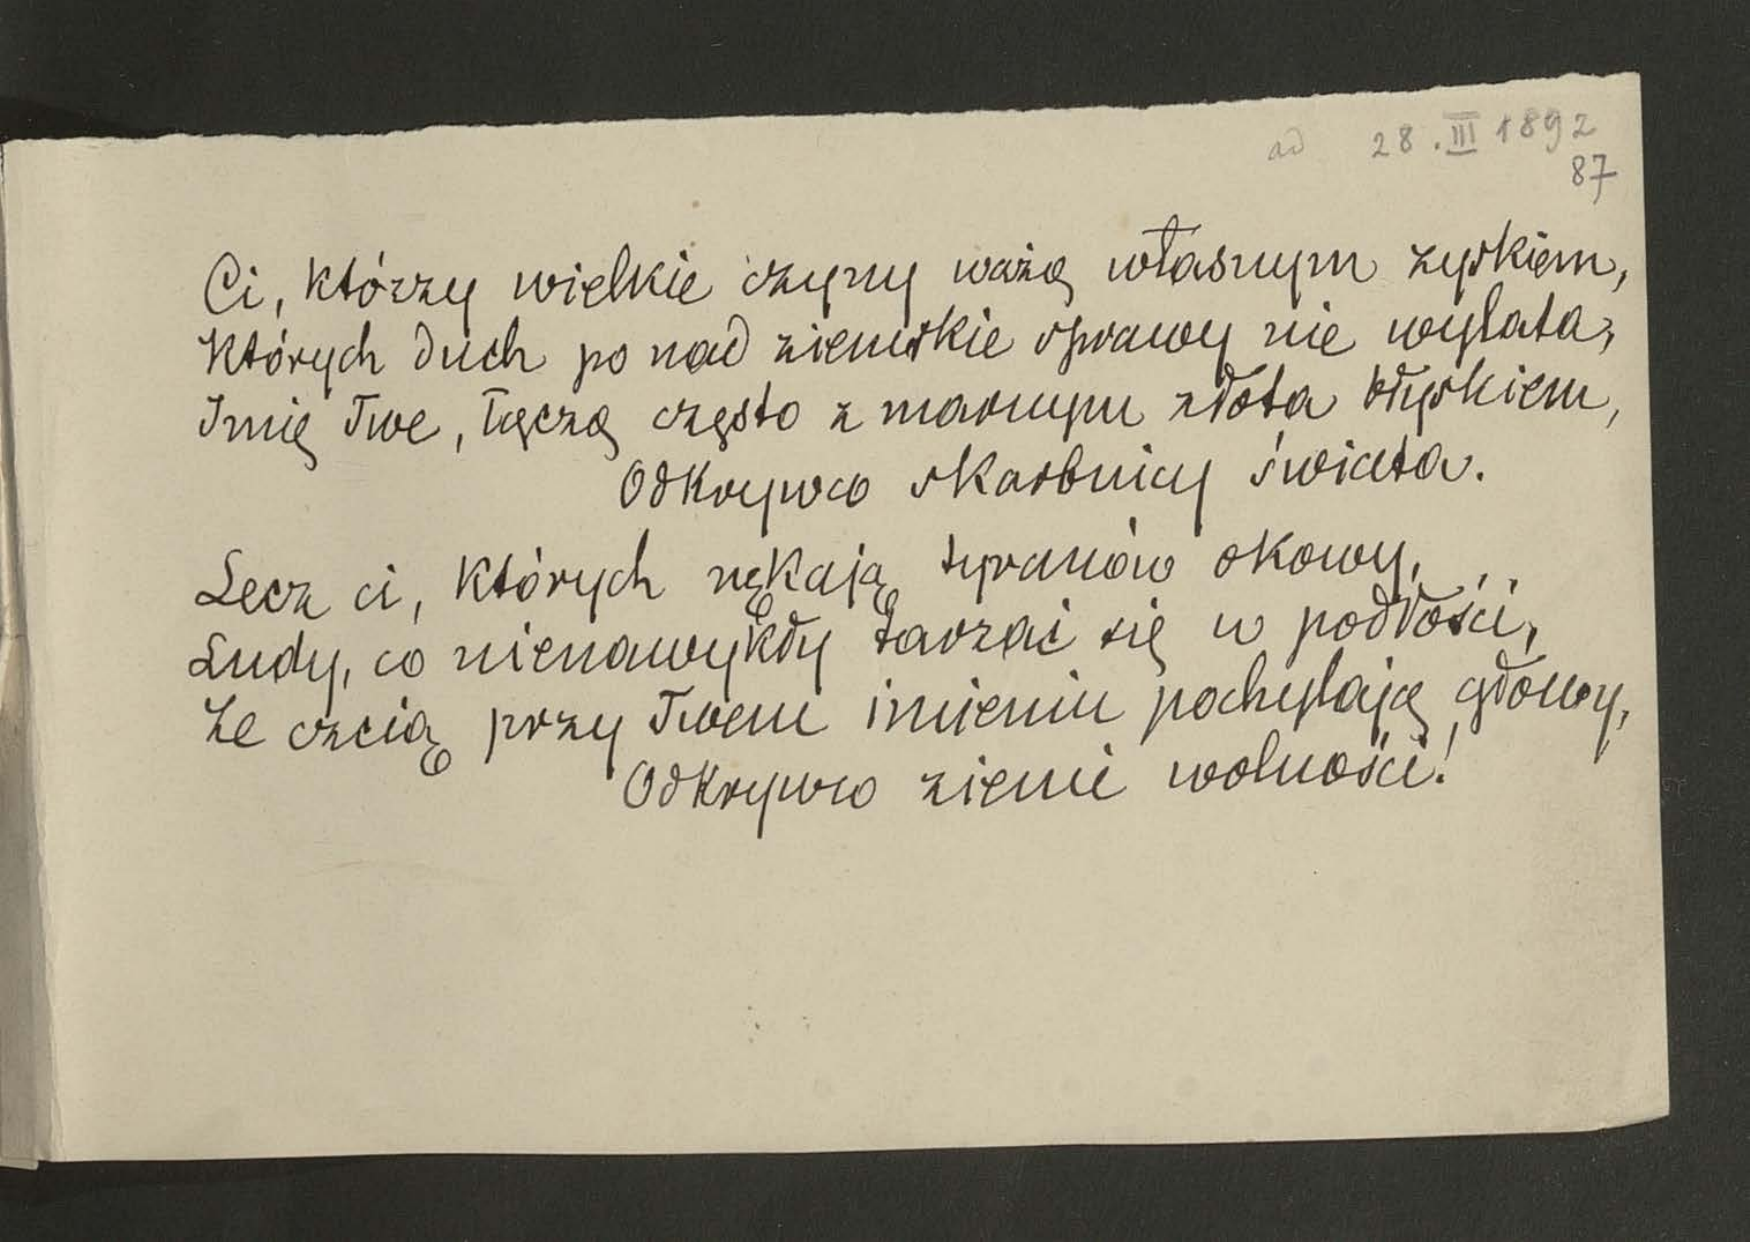 ad 28.III 1892
87
Ci, którzy wielkie czyny ważą własnym zyskiem,
Których duch po nad ziemskie sprawy nie wylata,
Imię Twe, łączą często z marnym złota błyskiem,
Odkrywco skarbnicy świata.
Lecz ci, których nękają tyranów okowy,
Ludy, co nienawykły tarzać się w podłości,
Ze czcią przy Twem imieniu pochylają głowy,
Odkrywco ziemi wolności!